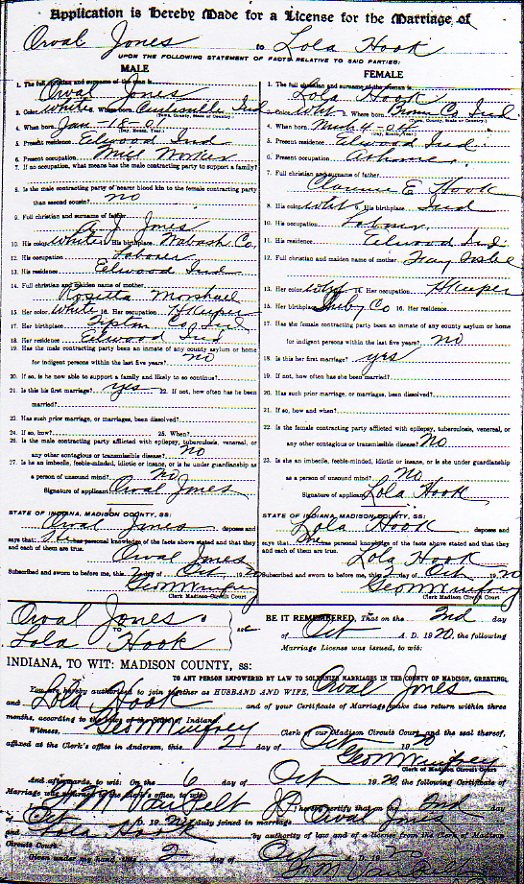 Application is Hereby Made for a License for the Marriage of
Orval Jones to Lola Hook
UPON THE FOLLOWING STATEMENT OF FACTS RELATIVE TO SAID PARTIES:
MALE
1. The full christian and surname of the man is
Orval Jones
2. Color white Where born Ind
(Town, County, State or Country)
4. When born Jan-18-01
(Day, Month, Year)
5. Present residence Elwood Ind
6. Present occupation Mill Worker
7. If no occupation, what means has the male contracting party to support a family?
8. Is the male contracting party of nearer blood kin to the female contracting party
than second cousin? no
9. Full christian and surname of father
J Jones
10. His color white His birthplace Wabash Co
12. His occupation Laborer
13. His residence Elwood Ind
14. Full christian and maiden name of mother
Rosetta Marshall
15. Her color White 16. Her occupation H Keeper
17. Her birthplace Tipton Co Ind
18. Her residence Elwood Ind
19. Has the male contracting party been an inmate of any county asylum or home
for indigent persons within the last five years? no
20. If so, is he now able to support a family and likely to so continue?
21. Is this his first marriage? yes 22. If not, how often has he been
married?
23. Has such prior marriage, or marriages, been dissolved?
24. If so, how? 25. When?
26. Is the male contracting party afflicted with epilepsy, tuberculosis, venereal, or
any other contagious or transmissible disease? No
27. Is he an imbecile, feeble-minded, idiotic or insane, or is he under guardianship as
a person of unsound mind? No
Signature of applicant Orval Jones
STATE OF INDIANA, MADISON COUNTY, SS:
Orval Jones deposes and
says that he has personal knowledge of the facts above stated and that they
and each of them are true.
Orval Jones
Subscribed and sworn to before me, this 2 day of Oct 1920
Geo M Winfrey
Clerk Madison Circuit Court
FEMALE
1. The full christian and surname of the woman is
Lola Hook
2. Color Where born Co Ind
(Town, County, State or Country)
4. When born Mch 4-04
5. Present residence Elwood Ind
6. Present occupation At home
7. Full christian and surname of father
Clarence E Hook
8. His color His birthplace Ind
10. His occupation Laborer
11. His residence Elwood Ind
12. Full christian and maiden name of mother
13. Her color 14. Her occupation H Keeper
15. Her birthplace Co 16. Her residence
17. Has the female contracting party been an inmate of any county asylum or home
for indigent persons within the last five years? no
18. Is this her first marriage? yes
19. If not, how often has she been married?
20. Has such prior marriage, or marriages, been dissolved?
21. If so, how and when?
22. Is the female contracting party afflicted with epilepsy, tuberculosis, venereal, or
any other contagious or transmissible disease? No
23. Is she an imbecile, feeble-minded, idiotic or insane, or is she under guardianship
as a person of unsound mind? No
Signature of applicant Lola Hook
STATE OF INDIANA, MADISON COUNTY, SS:
Lola Hook deposes and
says that She has personal knowledge of the facts above stated and that they
and each of them are true.
Lola Hook
Subscribed and sworn to before me, this 2 day of Oct 1920
Geo M Winfrey
Clerk Madison Circuit Court
Orval Jones
TO
Lola Hook
BE IT REMEMBERED, That on the 2nd day
of Oct A. D. 1920, the following
Marriage License was issued, to wit:
INDIANA, TO WIT: MADISON COUNTY, ss:
TO ANY PERSON EMPOWERED BY LAW TO SOLEMNIZE MARRIAGES IN THE COUNTY OF MADISON, GREETING,
You are hereby authorized to join together as HUSBAND AND WIFE, Orval Jones
and Lola Hook and of your Certificate of Marriage make due return within three
months, according to the laws of the State of Indiana.
Witness, Geo M Winfrey Clerk of our Madison Circuit Court and the seal thereof,
affixed at the Clerk's office in Anderson, this 2 day of Oct 1920
Geo M Winfrey
Clerk of Madison Circuit Court
And afterwards, to wit: On the 6 day of Oct 1920, the following Certificate of
Marriage was returned to the Clerk's office, to wit:
I hereby certify that on 2nd day
of Oct A. D. 1920 duly joined in marriage Orval Jones
and Lola Hook by authority of law and of a license from the Clerk of Madison
Circuit Court.
Given under my hand, this 2 day of Oct A. D.